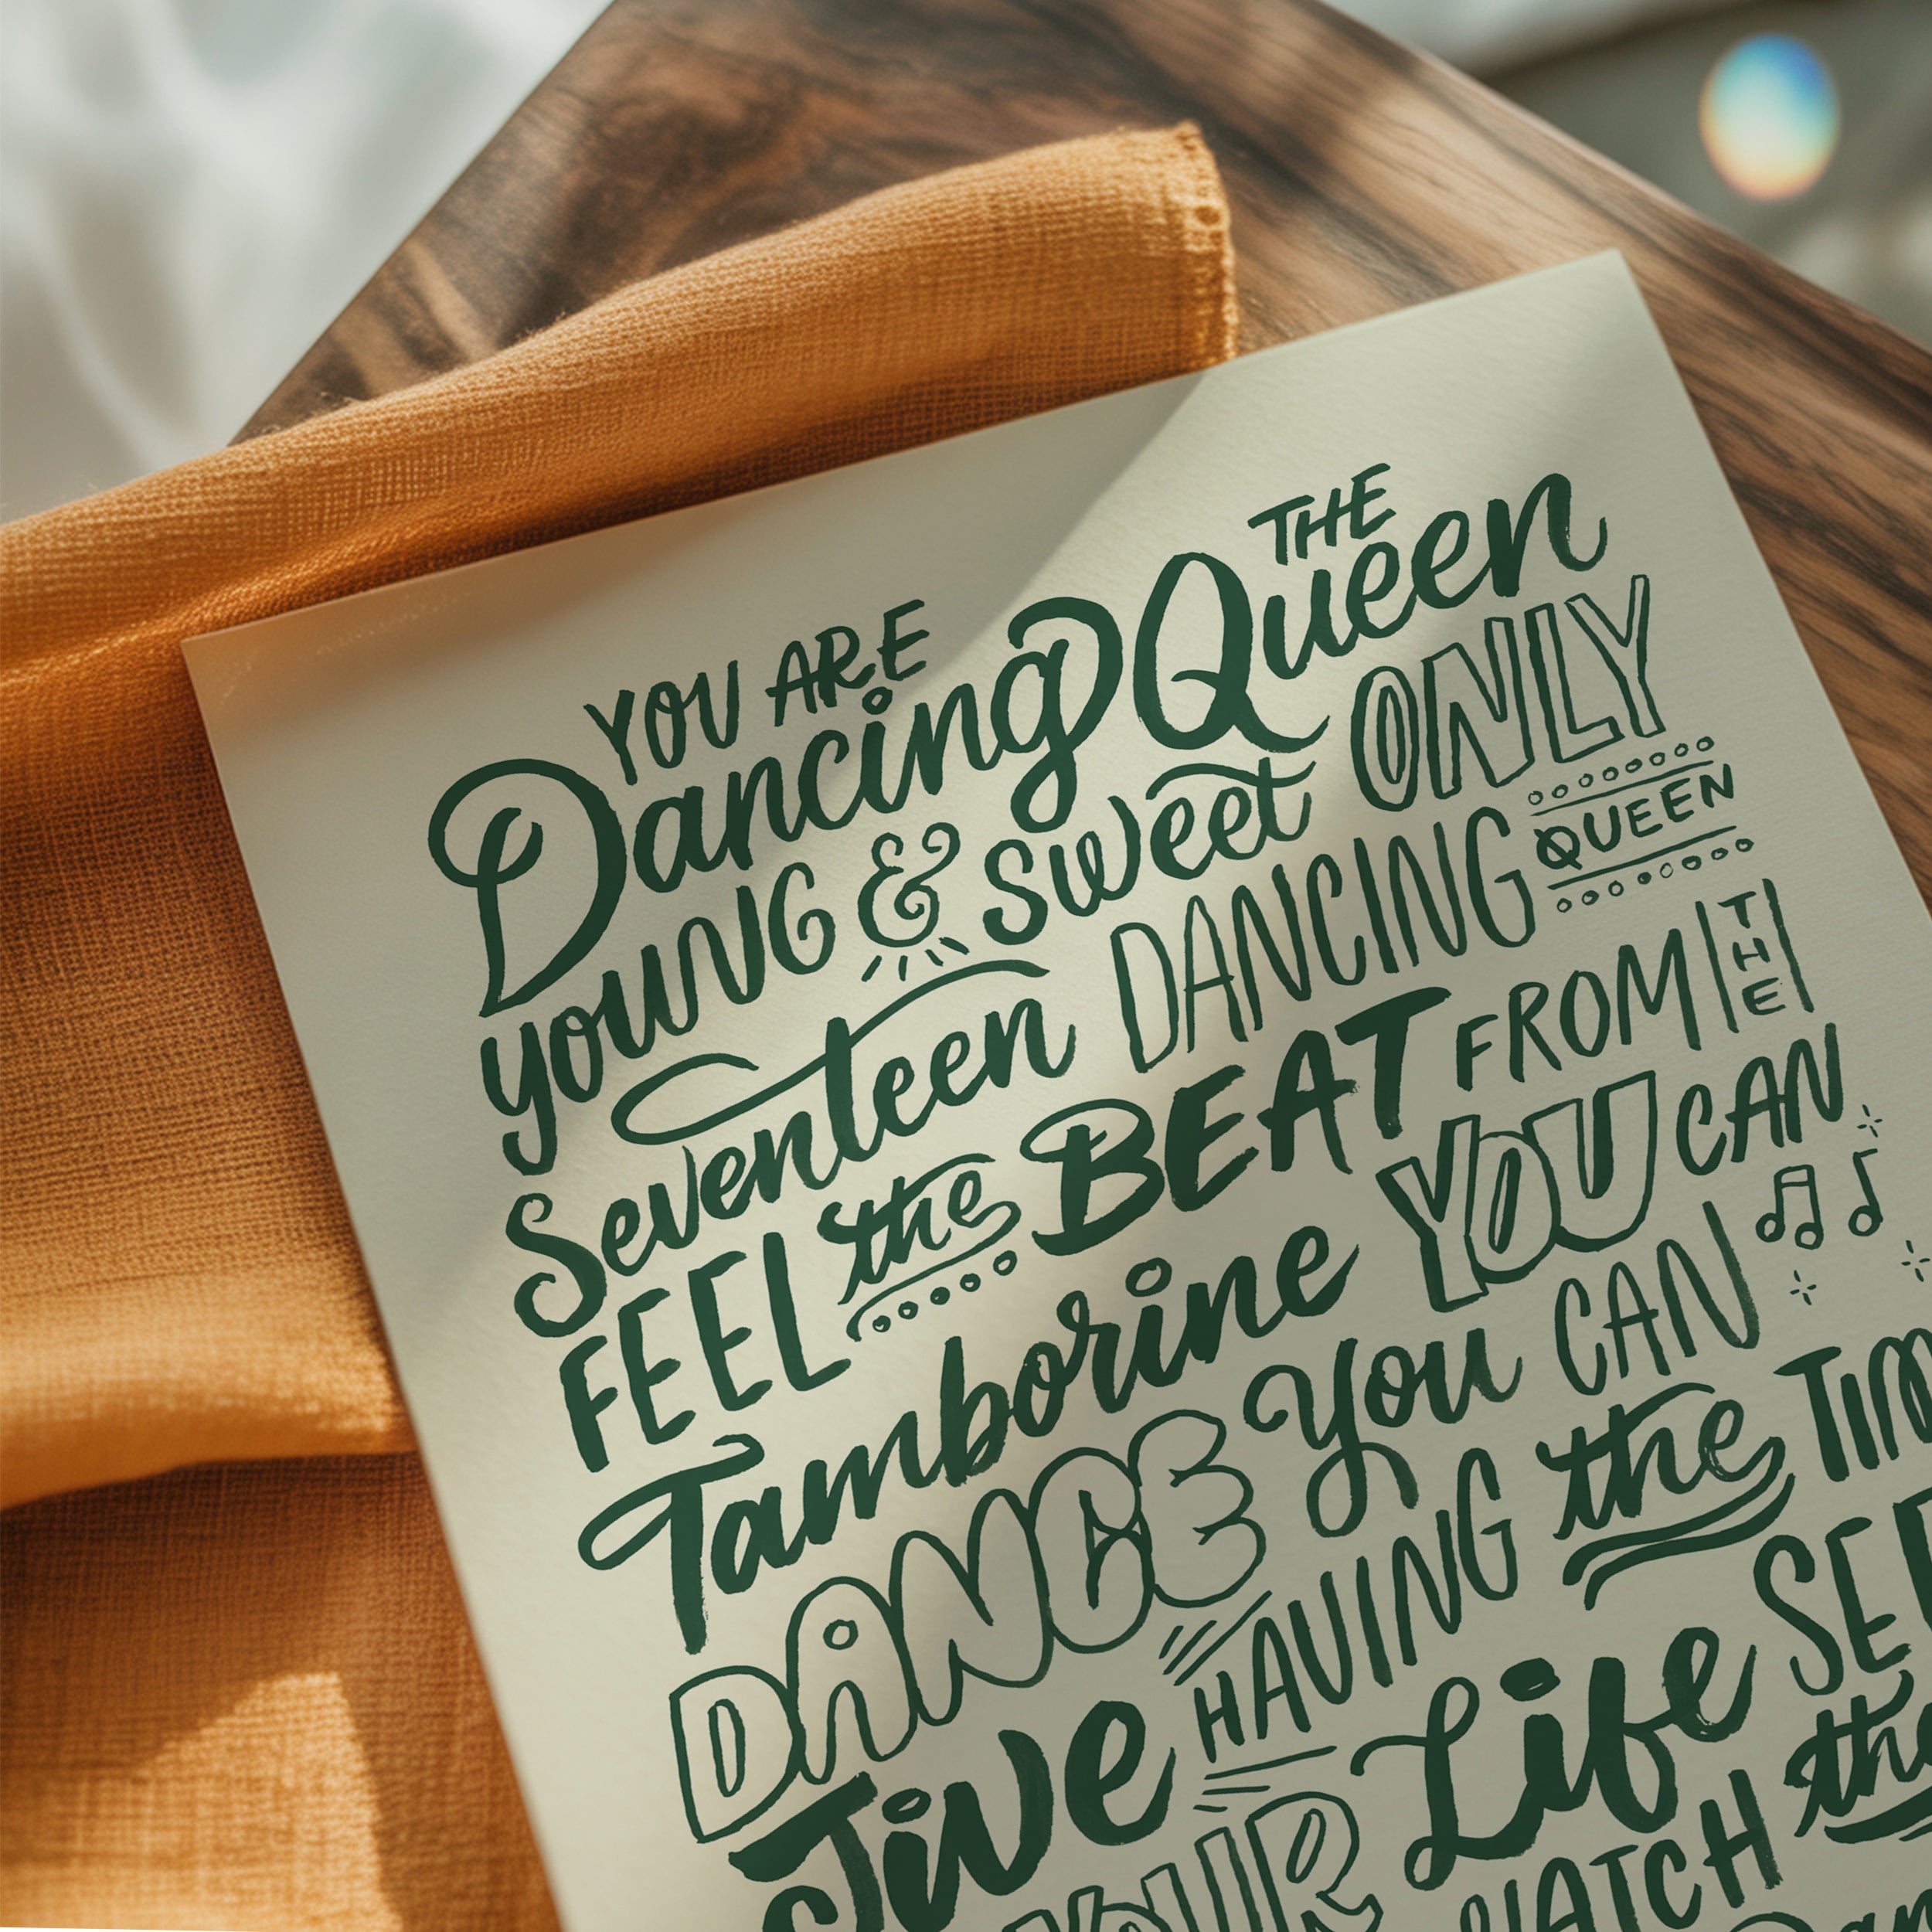 YOU ARE THE
Dancing Queen
YOUNG & Sweet ONLY
Seventeen DANCING QUEEN
FEEL the BEAT FROM THE
Tamborine YOU CAN
DANCE You CAN
Jive HAVING the
YOUR Life
WATCH the